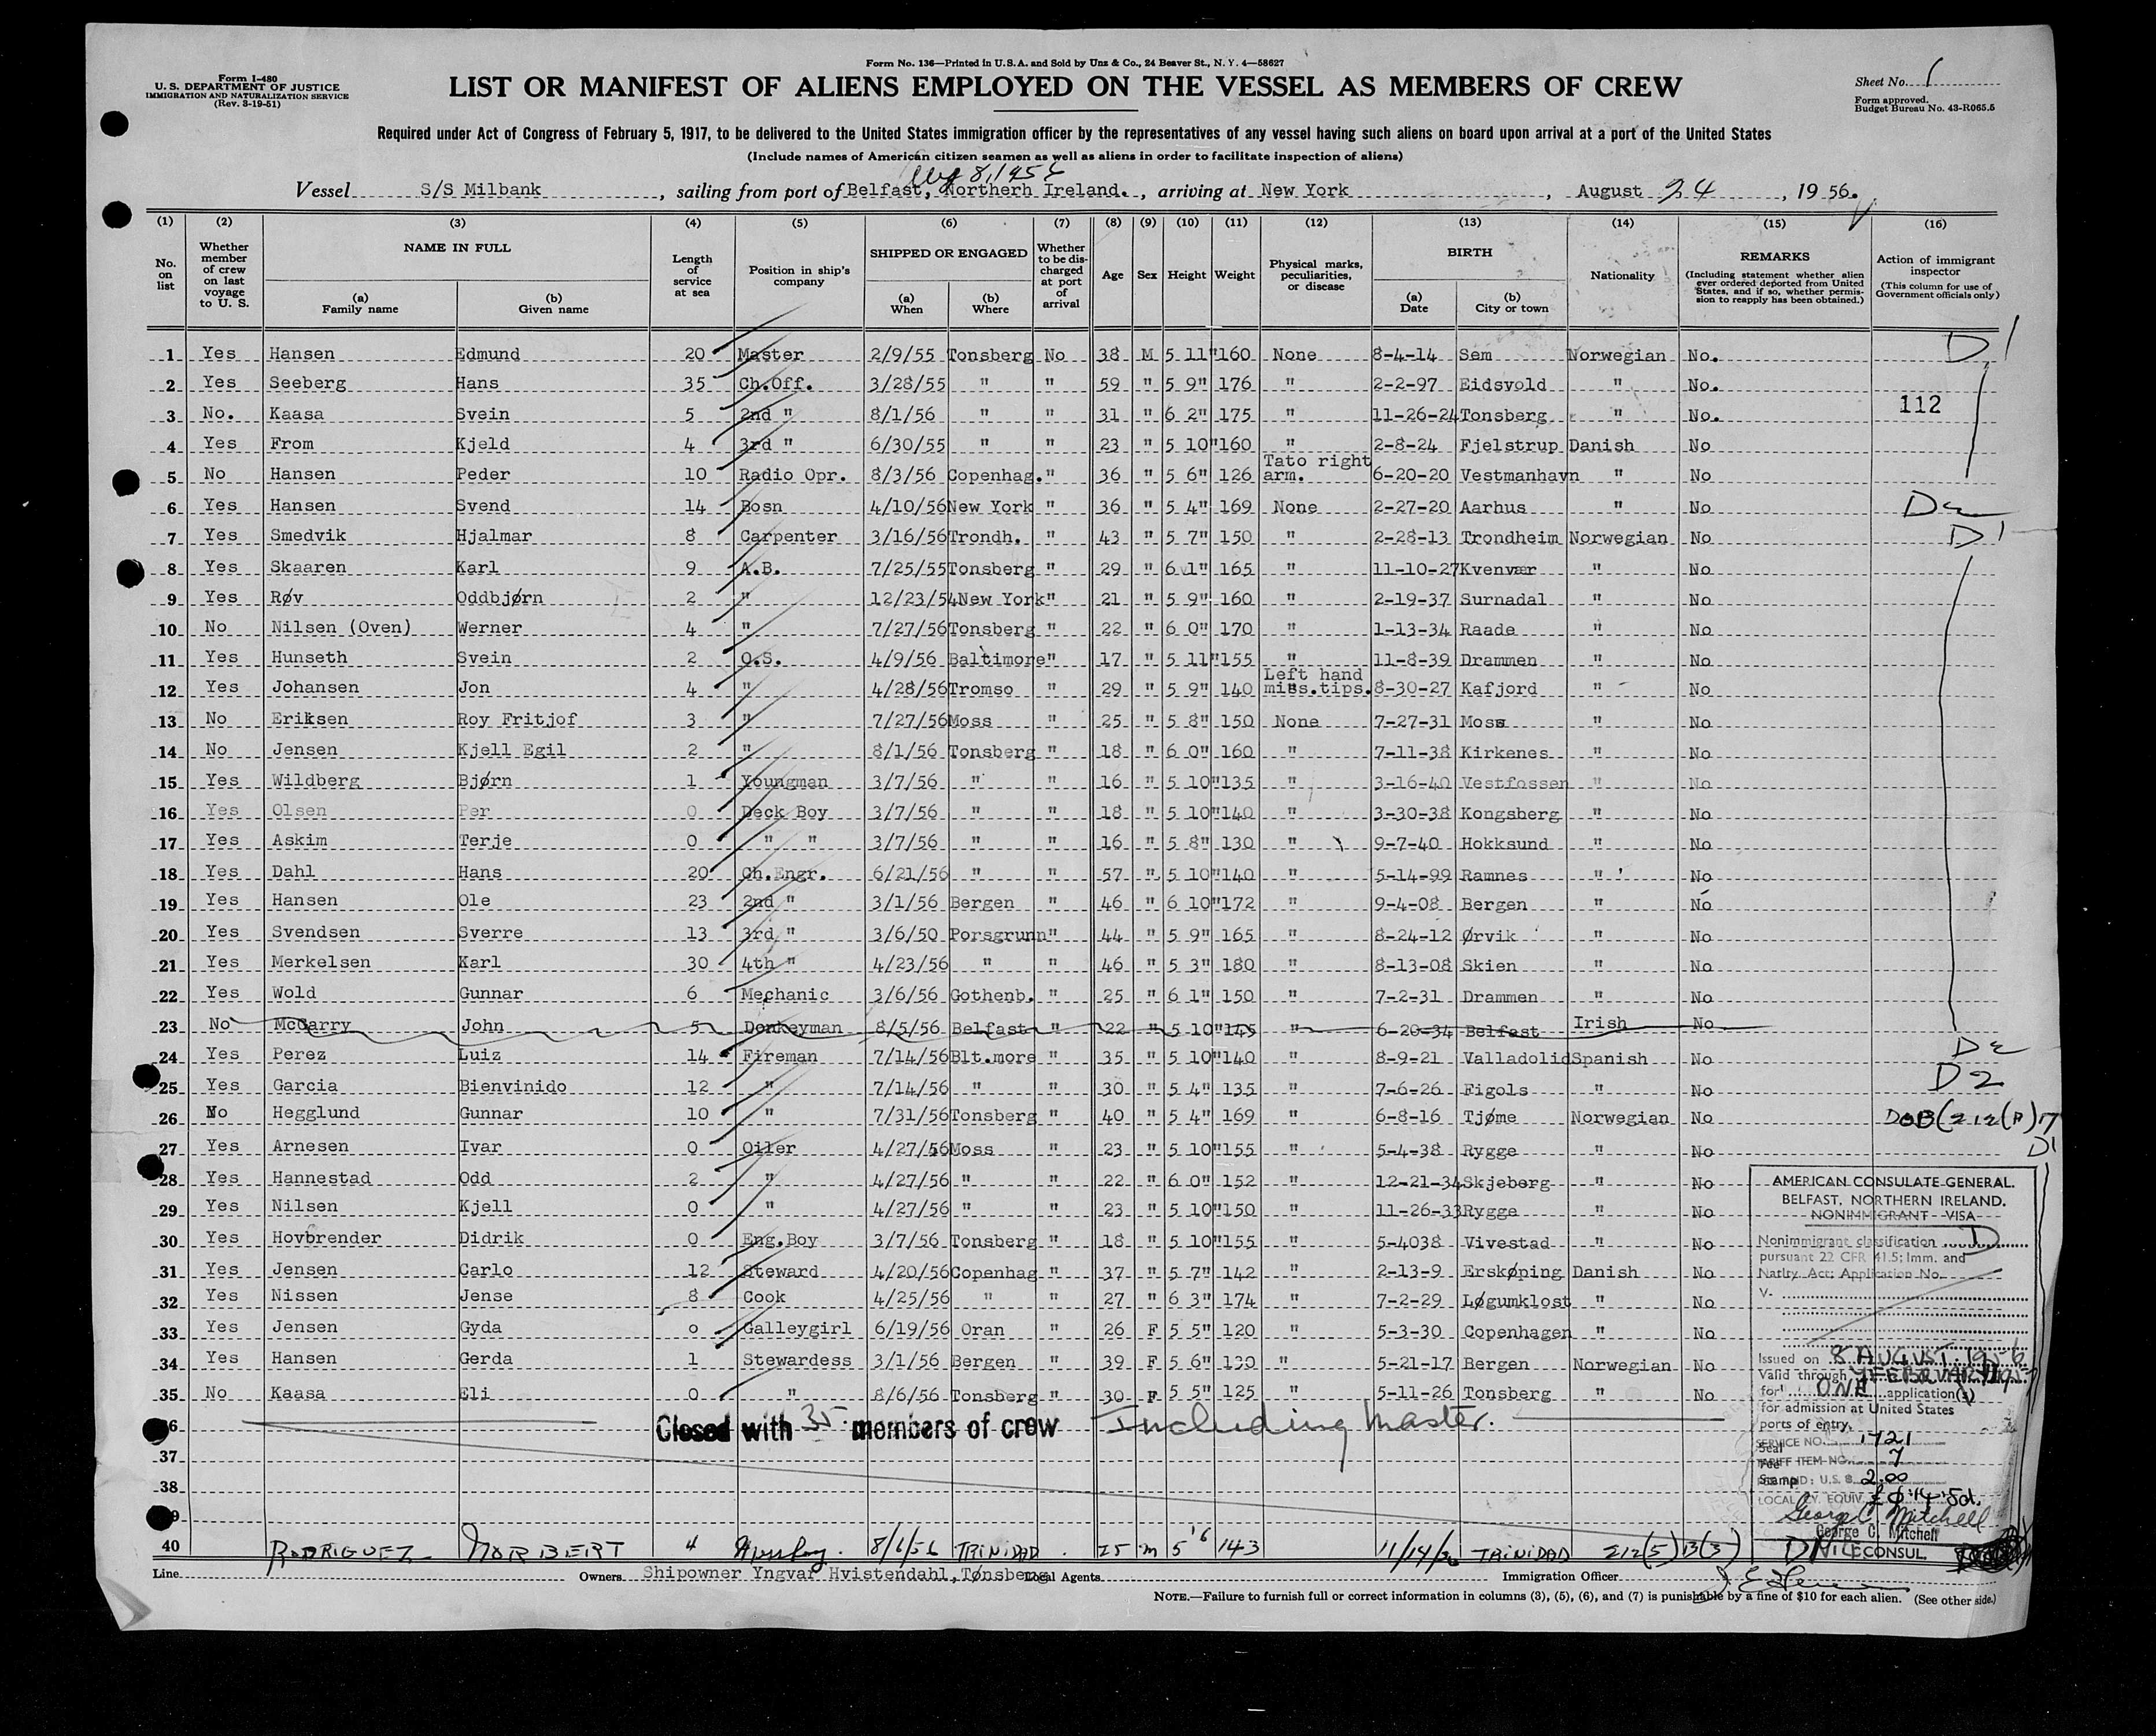 Form No. 136—Printed in U.S.A. and Sold by Unz & Co., 24 Beaver St., N. Y. 4—58627
Form I-480
U. S. DEPARTMENT OF JUSTICE
IMMIGRATION AND NATURALIZATION SERVICE
(Rev. 3-19-51)
LIST OR MANIFEST OF ALIENS EMPLOYED ON THE VESSEL AS MEMBERS OF CREW
Sheet No. 1
Form approved.
Budget Bureau No. 43-R065.5
Required under Act of Congress of February 5, 1917, to be delivered to the United States immigration officer by the representatives of any vessel having such aliens on board upon arrival at a port of the United States
(Include names of American citizen seamen as well as aliens in order to facilitate inspection of aliens)
Aug 8, 1956
Vessel S/S Milbank, sailing from port of Belfast, Northern Ireland., arriving at New York, August 24, 1956.
(1) (2) (3) (4) (5) (6) (7) (8) (9) (10) (11) (12) (13) (14) (15) (16)
No. on list
Whether member of crew on last voyage to U. S.
NAME IN FULL
(a) Family name
(b) Given name
Length of service at sea
Position in ship's company
SHIPPED OR ENGAGED
(a) When
(b) Where
Whether to be discharged at port of arrival
Age
Sex
Height
Weight
Physical marks, peculiarities, or disease
BIRTH
(a) Date
(b) City or town
Nationality
REMARKS
(Including statement whether alien ever ordered deported from United States, and if so, whether permission to reapply has been obtained.)
Action of immigrant inspector
(This column for use of Government officials only)
1 Yes Hansen Edmund 20 Master 2/9/55 Tonsberg No 38 M 5 11" 160 None 8-4-14 Sem Norwegian No. D1
2 Yes Seeberg Hans 35 Ch.Off. 3/28/55 " " 59 " 5 9" 176 " 2-2-97 Eidsvold " No.
3 No. Kaasa Svein 5 2nd " 8/1/56 " " 31 " 6 2" 175 " 11-26-24 Tonsberg " No. 112
4 Yes From Kjeld 4 3rd " 6/30/55 " " 23 " 5 10" 160 " 2-8-24 Fjelstrup Danish No
5 No Hansen Peder 10 Radio Opr. 8/3/56 Copenhag. " 36 " 5 6" 126 Tato right arm. 6-20-20 Vestmanhavn " No
6 Yes Hansen Svend 14 Bosn 4/10/56 New York " 36 " 5 4" 169 None 2-27-20 Aarhus " No D2
7 Yes Smedvik Hjalmar 8 Carpenter 3/16/56 Trondh. " 43 " 5 7" 150 " 2-28-13 Trondheim Norwegian No D1
8 Yes Skaaren Karl 9 A.B. 7/25/55 Tonsberg " 29 " 6 1" 165 " 11-10-27 Kvenvær " No
9 Yes Røv Oddbjørn 2 " 12/23/54 New York " 21 " 5 9" 160 " 2-19-37 Surnadal " No
10 No Nilsen (Oven) Werner 4 " 7/27/56 Tonsberg " 22 " 6 0" 170 " 1-13-34 Raade " No
11 Yes Hunseth Svein 2 O.S. 4/9/56 Baltimore " 17 " 5 11" 155 " 11-8-39 Drammen " No
12 Yes Johansen Jon 4 " 4/28/56 Tromso " 29 " 5 9" 140 Left hand miss.tips. 8-30-27 Kafjord " No
13 No Eriksen Roy Fritjof 3 " 7/27/56 Moss " 25 " 5 8" 150 None 7-27-31 Moss " No
14 No Jensen Kjell Egil 2 " 8/1/56 Tonsberg " 18 " 6 0" 160 " 7-11-38 Kirkenes " No
15 Yes Wildberg Bjørn 1 Youngman 3/7/56 " " 16 " 5 10" 135 " 3-16-40 Vestfossen " No
16 Yes Olsen Per 0 Deck Boy 3/7/56 " " 18 " 5 10" 140 " 3-30-38 Kongsberg " No
17 Yes Askim Terje 0 " " 3/7/56 " " 16 " 5 8" 130 " 9-7-40 Hokksund " No
18 Yes Dahl Hans 20 Ch.Engr. 6/21/56 " " 57 " 5 10" 140 " 5-14-99 Ramnes " No
19 Yes Hansen Ole 23 2nd " 3/1/56 Bergen " 46 " 6 10" 172 " 9-4-08 Bergen " No
20 Yes Svendsen Sverre 13 3rd " 3/6/50 Porsgrunn " 44 " 5 9" 165 " 8-24-12 Ørvik " No
21 Yes Merkelsen Karl 30 4th " 4/23/56 " " 46 " 5 3" 180 " 8-13-08 Skien " No
22 Yes Wold Gunnar 6 Mechanic 3/6/56 Gothenb. " 25 " 6 1" 150 " 7-2-31 Drammen " No
23 No McGarry John 5 Donkeyman 8/5/56 Belfast " 22 " 5 10" 145 " 6-20-34 Belfast Irish No
24 Yes Perez Luiz 14 Fireman 7/14/56 Blt.more " 35 " 5 10" 140 " 8-9-21 Valladolid Spanish No D2
25 Yes Garcia Bienvinido 12 " 7/14/56 " " 30 " 5 4" 135 " 7-6-26 Figols " No D2
26 No Hegglund Gunnar 10 " 7/31/56 Tonsberg " 40 " 5 4" 169 " 6-8-16 Tjøme Norwegian No DOB(212(A)17
27 Yes Arnesen Ivar 0 Oiler 4/27/56 Moss " 23 " 5 10" 155 " 5-4-38 Rygge " No D1
28 Yes Hannestad Odd 2 " 4/27/56 " " 22 " 6 0" 152 " 12-21-34 Skjeberg " No
29 Yes Nilsen Kjell 0 " 4/27/56 " " 23 " 5 10" 150 " 11-26-33 Rygge " No
30 Yes Hovbrender Didrik 0 Eng.Boy 3/7/56 Tonsberg " 18 " 5 10" 155 " 5-4038 Vivestad " No
31 Yes Jensen Carlo 12 Steward 4/20/56 Copenhag " 37 " 5 7" 142 " 2-13-9 Erskøping Danish No
32 Yes Nissen Jense 8 Cook 4/25/56 " " 27 " 6 3" 174 " 7-2-29 Løgumklost " No
33 Yes Jensen Gyda o Galleygirl 6/19/56 Oran " 26 F 5 5" 120 " 5-3-30 Copenhagen " No
34 Yes Hansen Gerda 1 Stewardess 3/1/56 Bergen " 39 F 5 6" 130 " 5-21-17 Bergen Norwegian No
35 No Kaasa Eli 0 " 8/6/56 Tonsberg " 30 F 5 5" 125 " 5-11-26 Tonsberg " No
36 Closed with 35 members of crew Including Master.
37
38
39
40 RODRIGUEZ NORBERT 4 8/6/56 TRINIDAD 25 m 5 '6 143 11/14/ TRINIDAD 212(5) 13(3) D1
AMERICAN CONSULATE GENERAL.
BELFAST, NORTHERN IRELAND.
NONIMMIGRANT VISA
Nonimmigrant classification D
pursuant 22 CFR 41.5; Imm. and
Natlty. Act; Application No.
V-
Issued on 8 AUGUST 1956
Valid through 7 FEBRUARY 1957
for ONE application(s)
for admission at United States
ports of entry.
SERVICE NO. 1721
Seal
TARIFF ITEM NO. 7
Fee
Stamp PAID: U.S. $ 2.00
LOCAL CY. EQUIV. £ 0.14.5d.
George C. Mitchell
George C. Mitchell
VICE CONSUL.
Line Owners Shipowner Yngvar Hvistendahl, Tønsberg Local Agents Immigration Officer
NOTE.—Failure to furnish full or correct information in columns (3), (5), (6), and (7) is punishable by a fine of $10 for each alien. (See other side.)